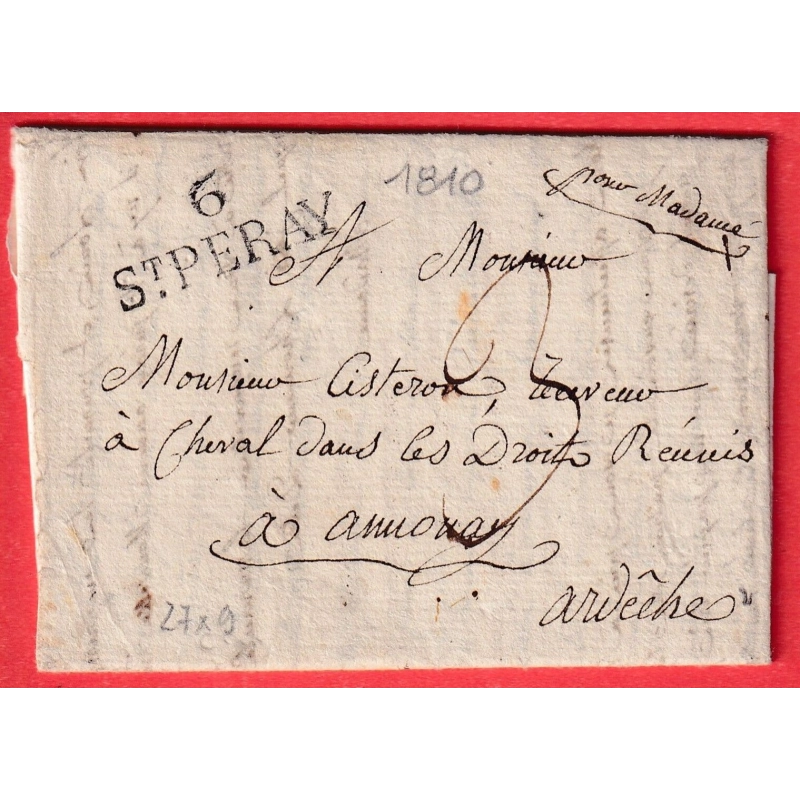 6
ST. PERAY
1810
pour Madame
A Monsieur
Monsieur Cisteron, receveur
à Cheval dans les Droits Réunis
à annonay
ardêche
27x9